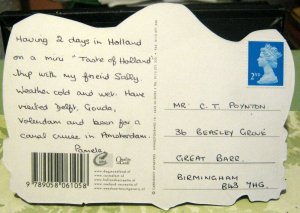 Having 2 days in Holland
on a mini "Taste of Holland"
trip with my friend Sally.
Weather cold and wet. Have
visited Delft, Gouda,
Volendam and been for a
canal cruise in Amsterdam.
Pamela
9789058061058
2ND
MR C. T. POYNTON
36 BEASLEY GROVE
GREAT BARR.
BIRMINGHAM
B43 7HG.